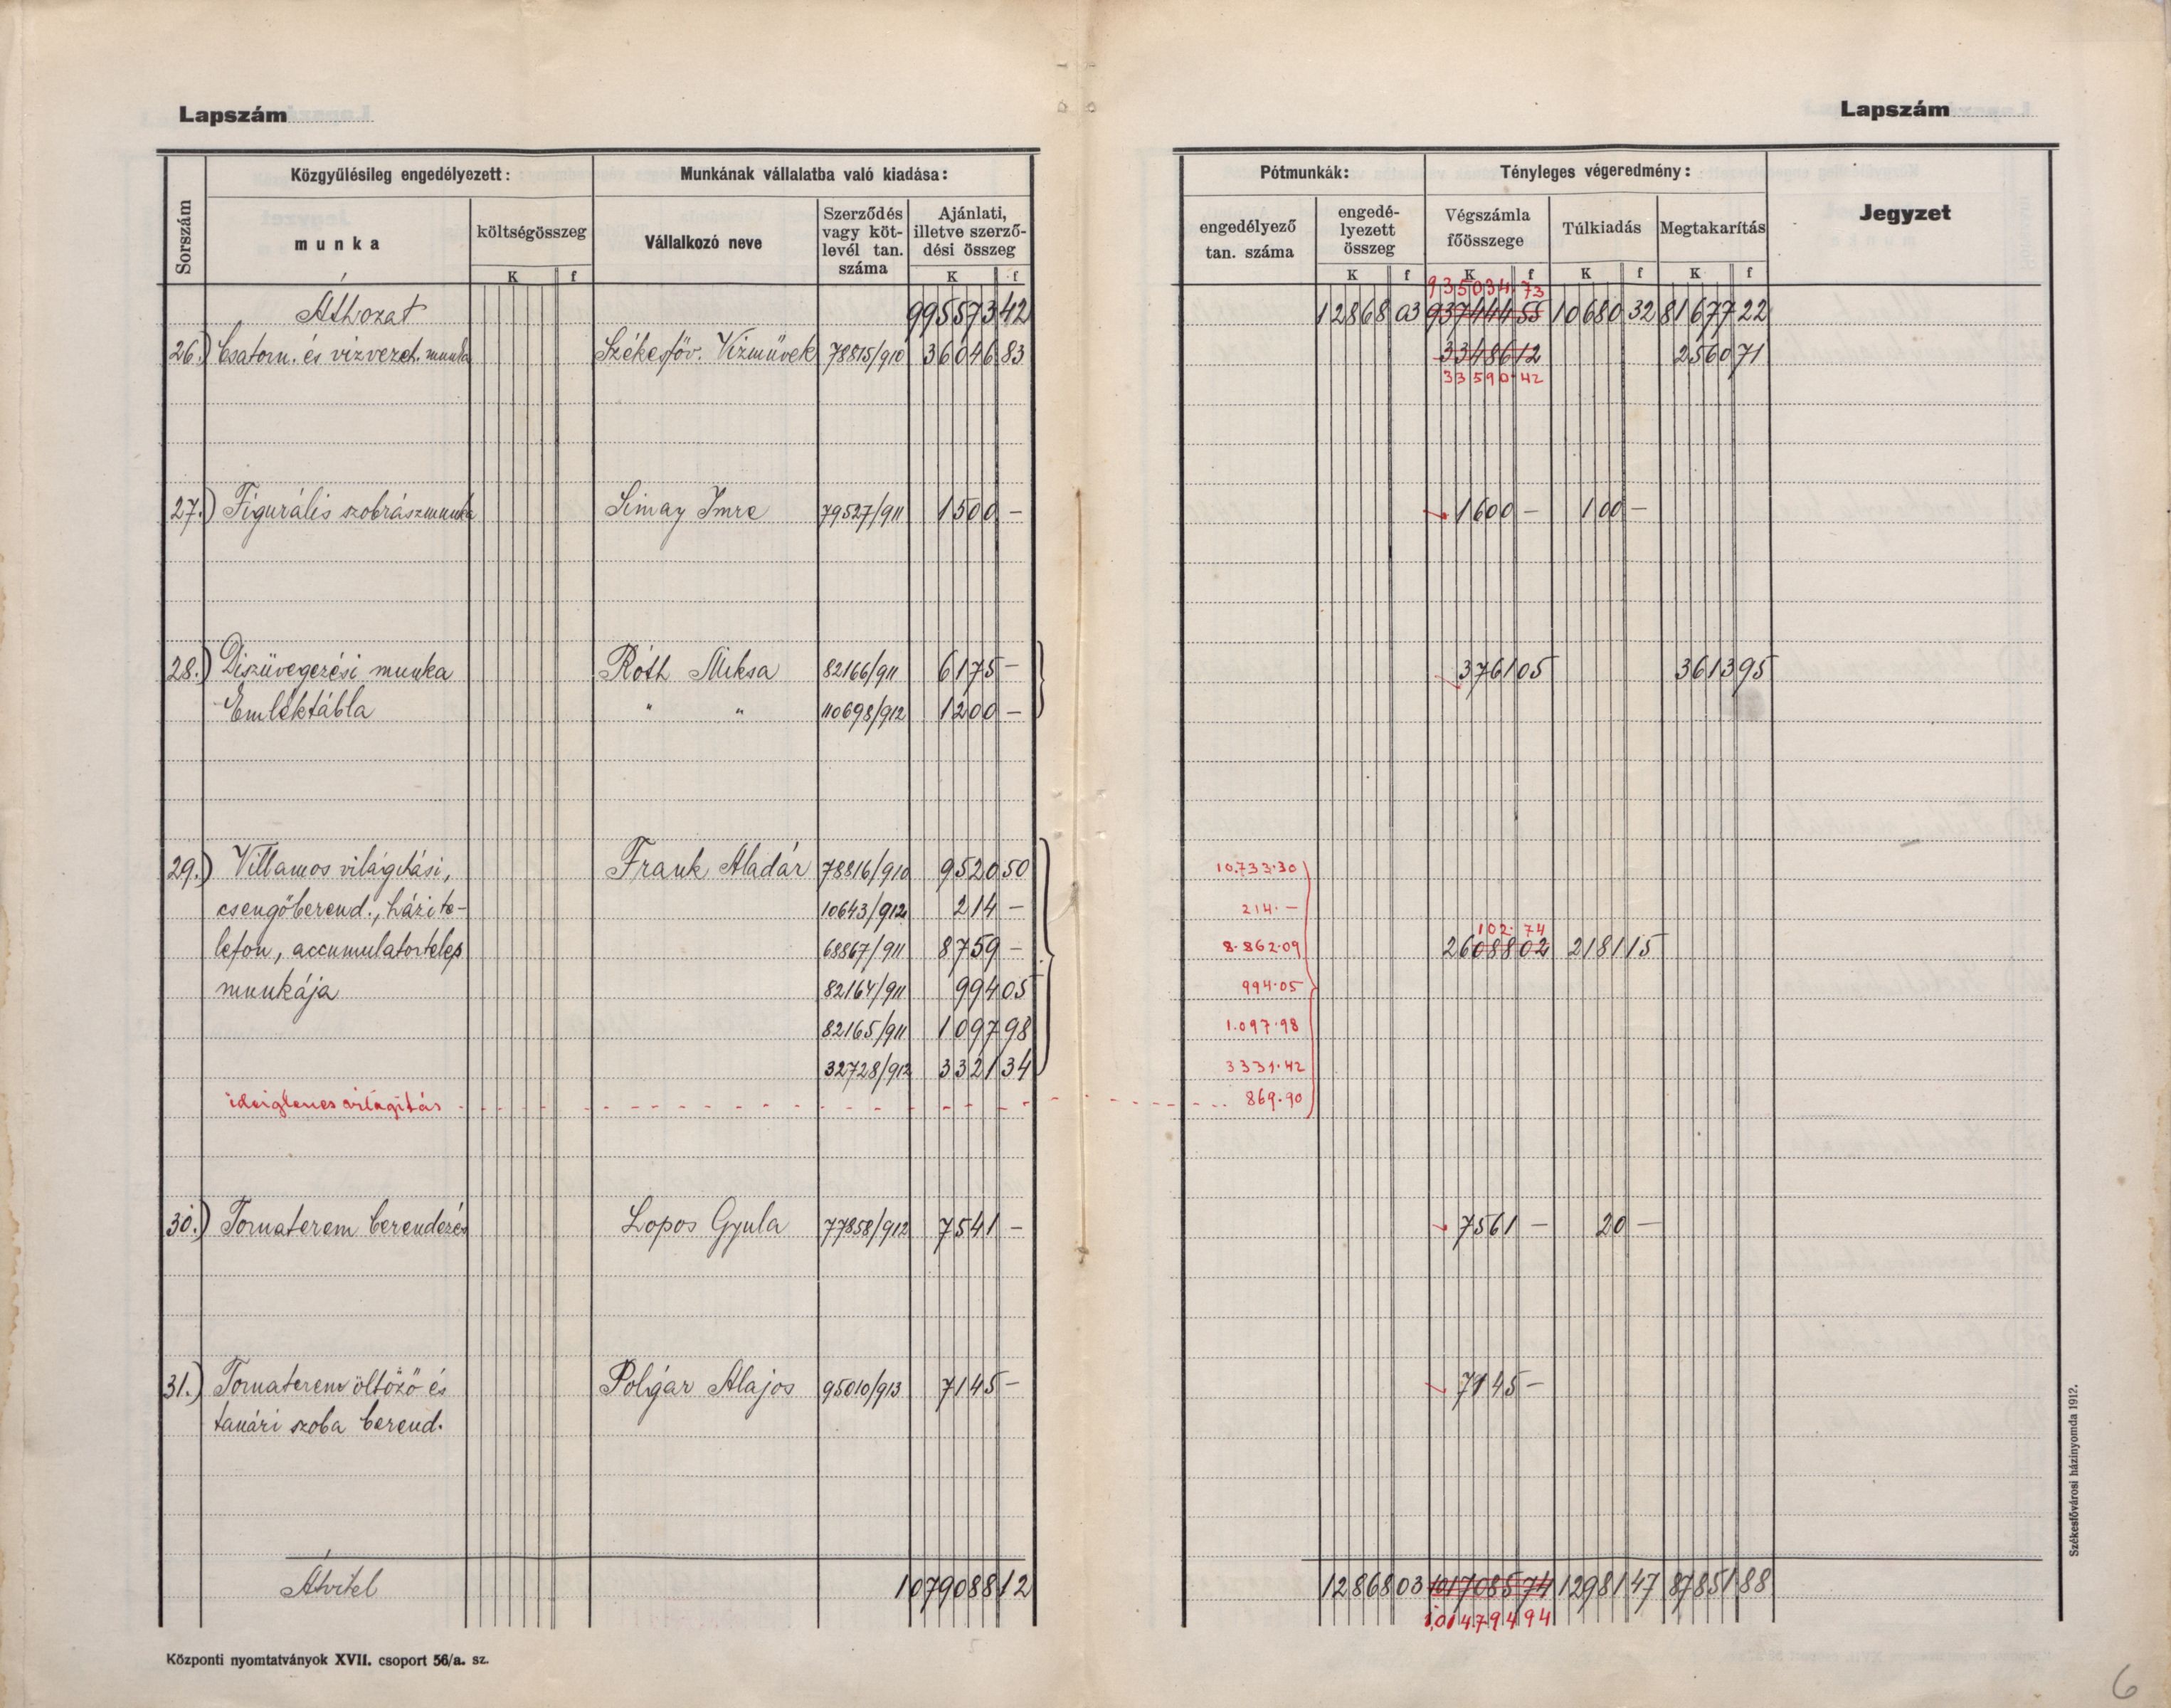 Lapszám
Lapszám
Sorszám
Közgyűlésileg engedélyezett:
munka
költségösszeg
K f
Munkának vállalatba való kiadása:
Vállalkozó neve
Szerződés vagy köt-
levél tan.
száma
Ajánlati,
illetve szerző-
dési összeg
K f
Pótmunkák:
engedélyező
tan. száma
engedé-
lyezett
összeg
K f
Tényleges végeredmény:
Végszámla
főösszege
K f
Túlkiadás
K f
Megtakarítás
K f
Jegyzet
935034.73
Áthozat 995573 42 12868 03 937444 55 10680 32 81677 22
26.) Csatorn. és vizvezet. munka Székesföv. Vízművek 78815/910 36046 83 33486 12 2560 71
33590.42
27.) Figurális szobrászmunka Simay Imre 79527/911 1500 – 1600 – 100 –
28.) Diszüvegezési munka Róth Miksa 82166/911 6175 – 3761 05 3613 95
Emléktábla " " 110698/912 1200 –
29.) Villamos világitási, Frank Aladár 78816/910 9520 50 10.733.30
csengőberend., házite- 10643/912 214 – 214.–
102.74
lefon, accumulatortelep 68867/911 8759 – 8.862.09 26088 02 2181 15
munkája 82164/911 994 05 994.05
82165/911 1097 98 1.097.98
32728/912 3321 34 3331.42
ideiglenes világítás 869.90
30.) Tornaterem berendezés Lopos Gyula 77858/912 7541 – 7561 – 20 –
31.) Tornaterem öltöző és Polgár Alajos 95010/913 7145 – 7145 –
tanári szoba berend.
Átvitel 1079088 12 12868 03 1017085 74 12981 47 87851 88
1,014794 94
Központi nyomtatványok XVII. csoport 56/a. sz.
Székesfővárosi házinyomda 1912.
6